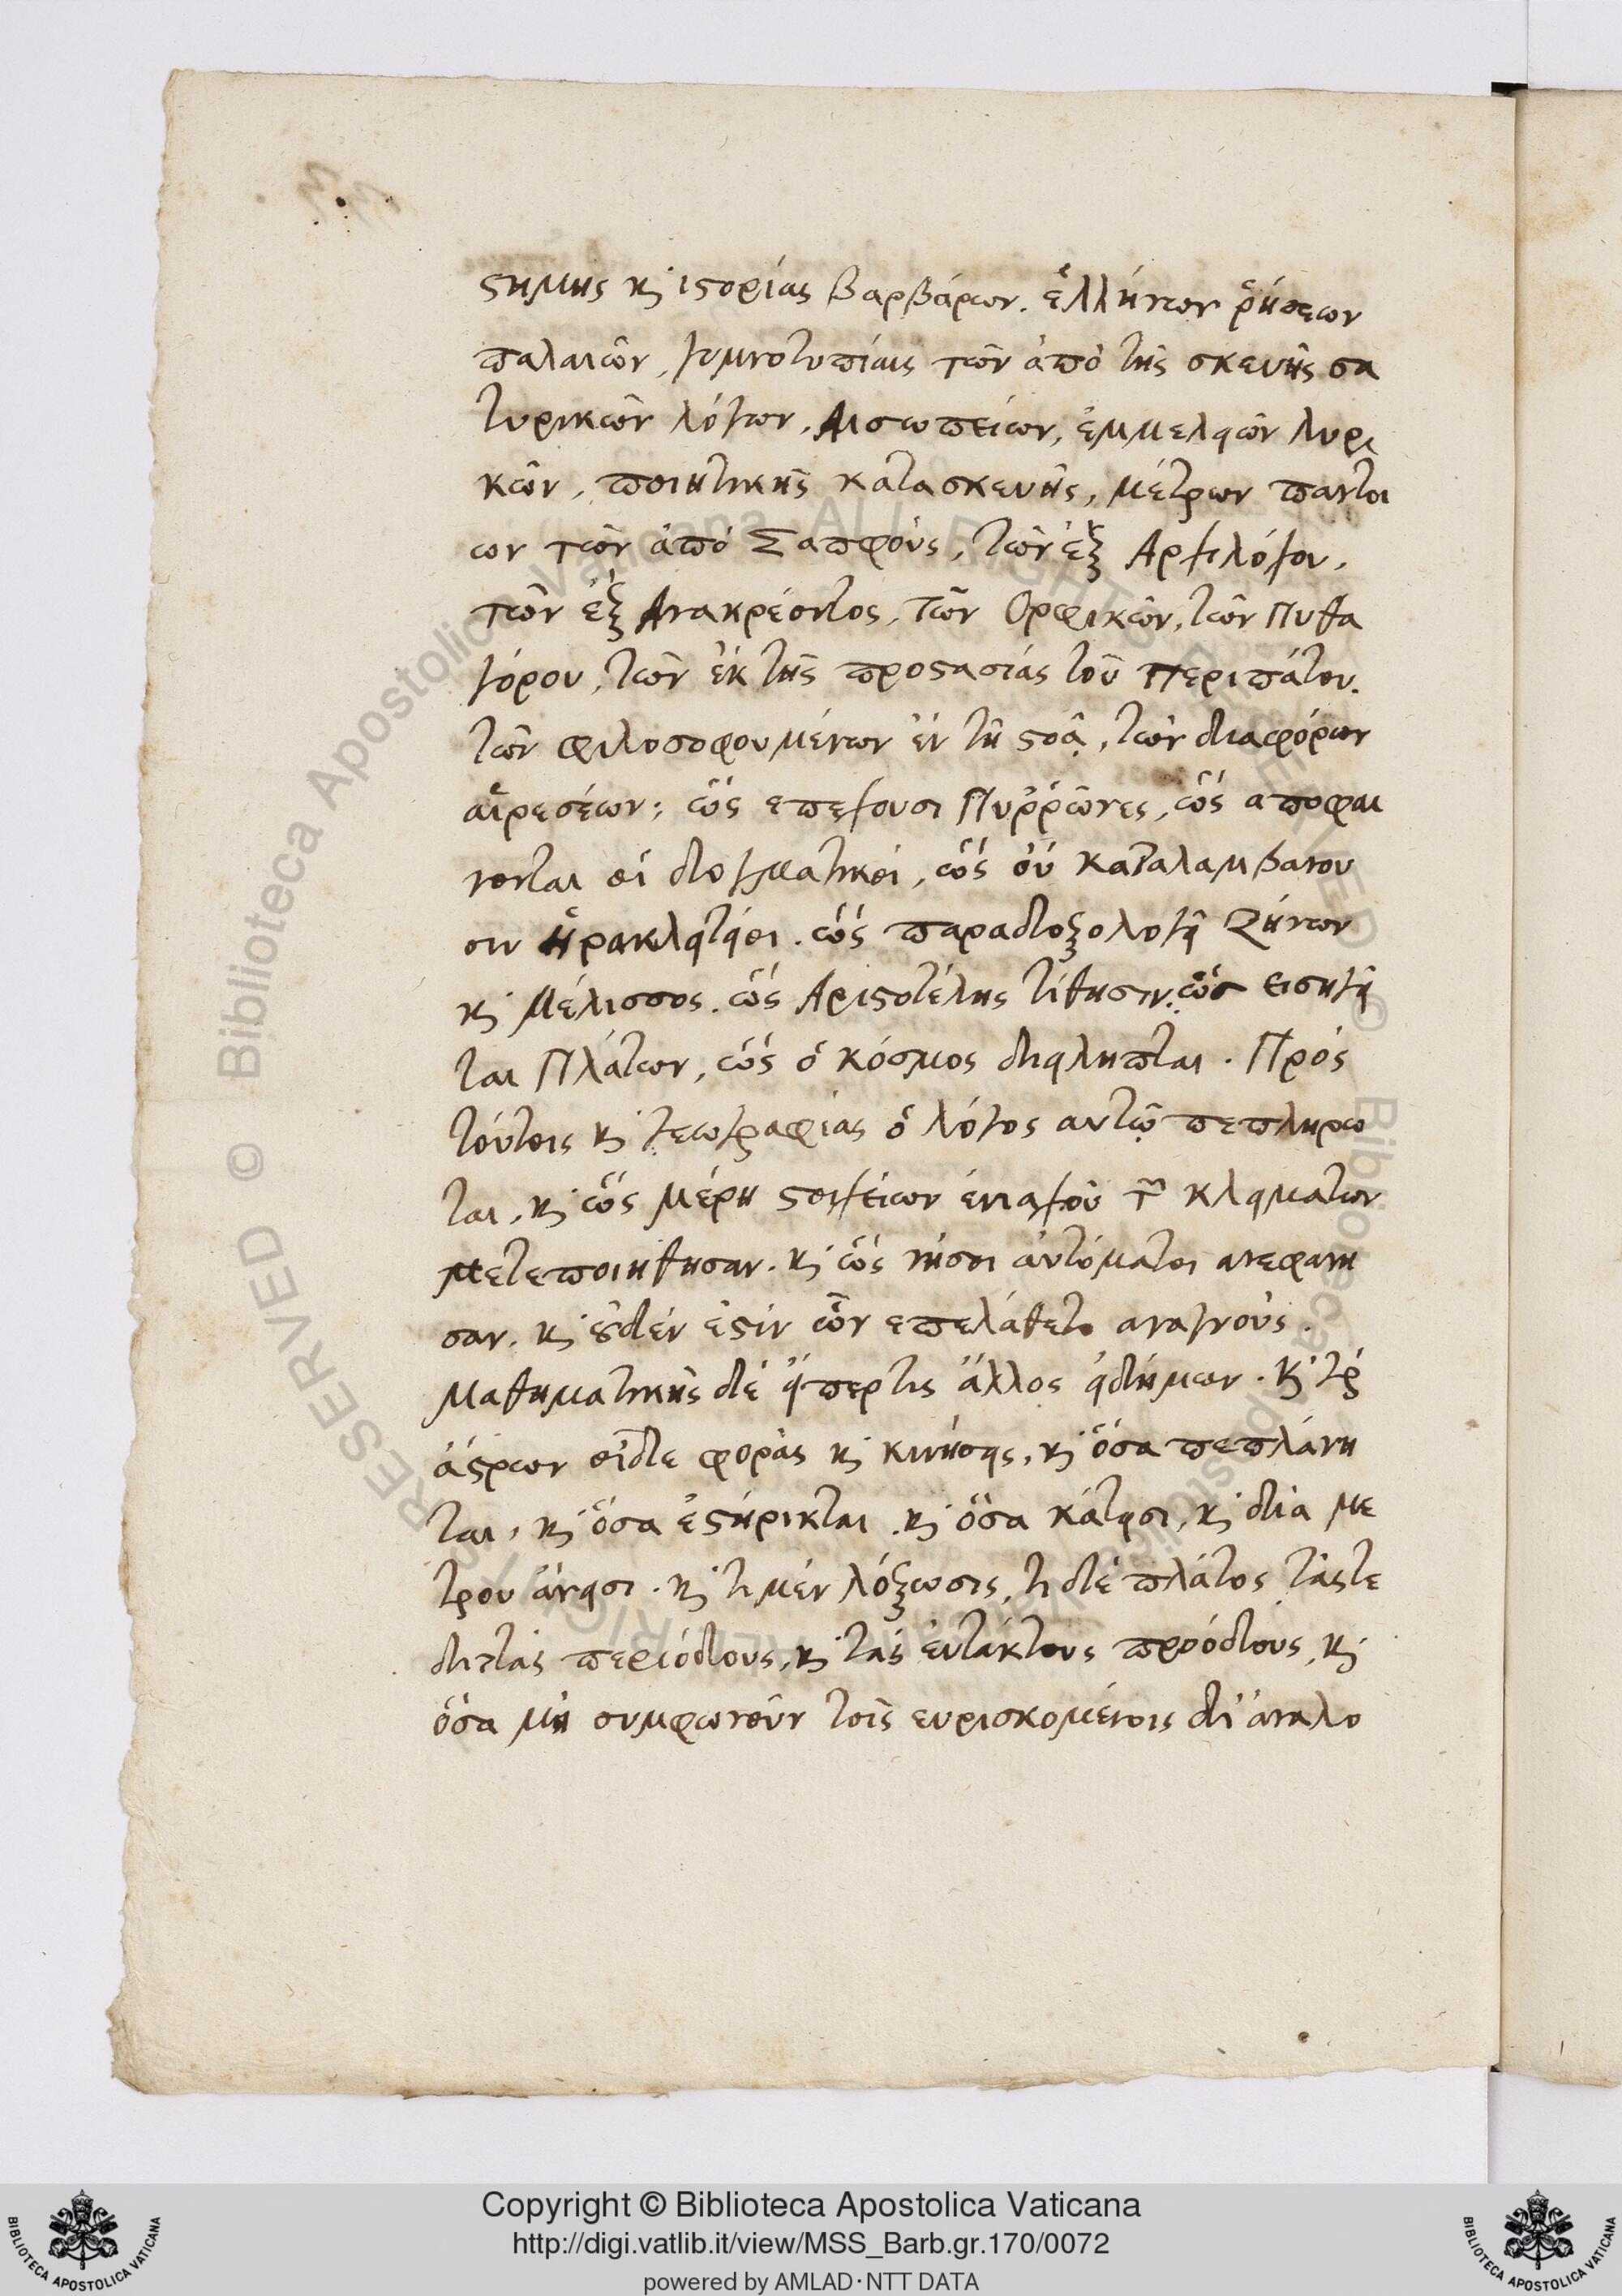 στήμης κ ἱστορίας βαρβάρων. ἑλλήνων ῥήσεων
παλαιῶν, γνμνοτυπίαις τῶν ἀπὸ τῆς σκευῆς σα
τυρικῶν λόγων, Αισωπείων, ἐμμελειῶν λυρι
κῶν, ποιητικῆς κατασκευῆς, μέτρων παντοι
ων τῶν ἀπὸ Σαπφοὺς, τῶν ἐξ Αρχιλόχου,
τῶν ἐξ Ανακρέοντος, τῶν Ορφικῶν, τῶν Πυθα
γόρου, τῶν ἐκ τῆς προστασίας τοῦ Περιπάτου.
τῶν φιλοσοφουμένων ἐν τῇ στοᾷ, τῶν διαφόρων
αἱρεσέων; ὡς επεχουσι Πυῤῥῶνες, ὡς αποφαι
νονται οἱ δογματικοὶ, ὡς οὐ καταλαμβανου
σιν Ἡρακλείτειοι. ὡς παραδοξολογεῖ Ζήνων
κ Μέλισσος. ὡς Αριστοτέλης τίθησιν. ὡς εισηγεῖ
ται Πλάτων, ὡς ὁ κόσμος διείληπται. Πρὸς
τούτοις κ γεωγραφίας ὁ λόγος αυτῷ πεπληρω
ται, κ ὡς μέρη στοιχείων ἐνιαχοῦ τ κλειματων
μετεποιηθησαν. κ ὡς νήσοι ἀυτόματοι ανεφανη
σαν. κ ȣδὲν ἐστὶν ὧν επελάθετο αναγνοὺς.
Μαθηματικῆς δὲ εἴπερτις ἄλλος εἰδήμων. κ τρ
ἄστρων οἶδε φορὰς κ κινήσεις, κ ὅσα πεπλάνη
ται, κ ὅσα ἐστήρικται. κ ὅσα κάτεισι, κ διὰ με
τρου ἄνεισι. κ τι μὲν λόξωσις, τι δὲ πλάτος τάςτε
διττὰς περιόδους, κ τὰς ἐυτάκτους προόδους, κ
ὅσα μὴ συμφωνοῦν τοῖς ευρισκομένοις δι' ἀναλο
Copyright © Biblioteca Apostolica Vaticana
http://digi.vatlib.it/view/MSS_Barb.gr.170/0072
powered by AMLAD·NTT DATA